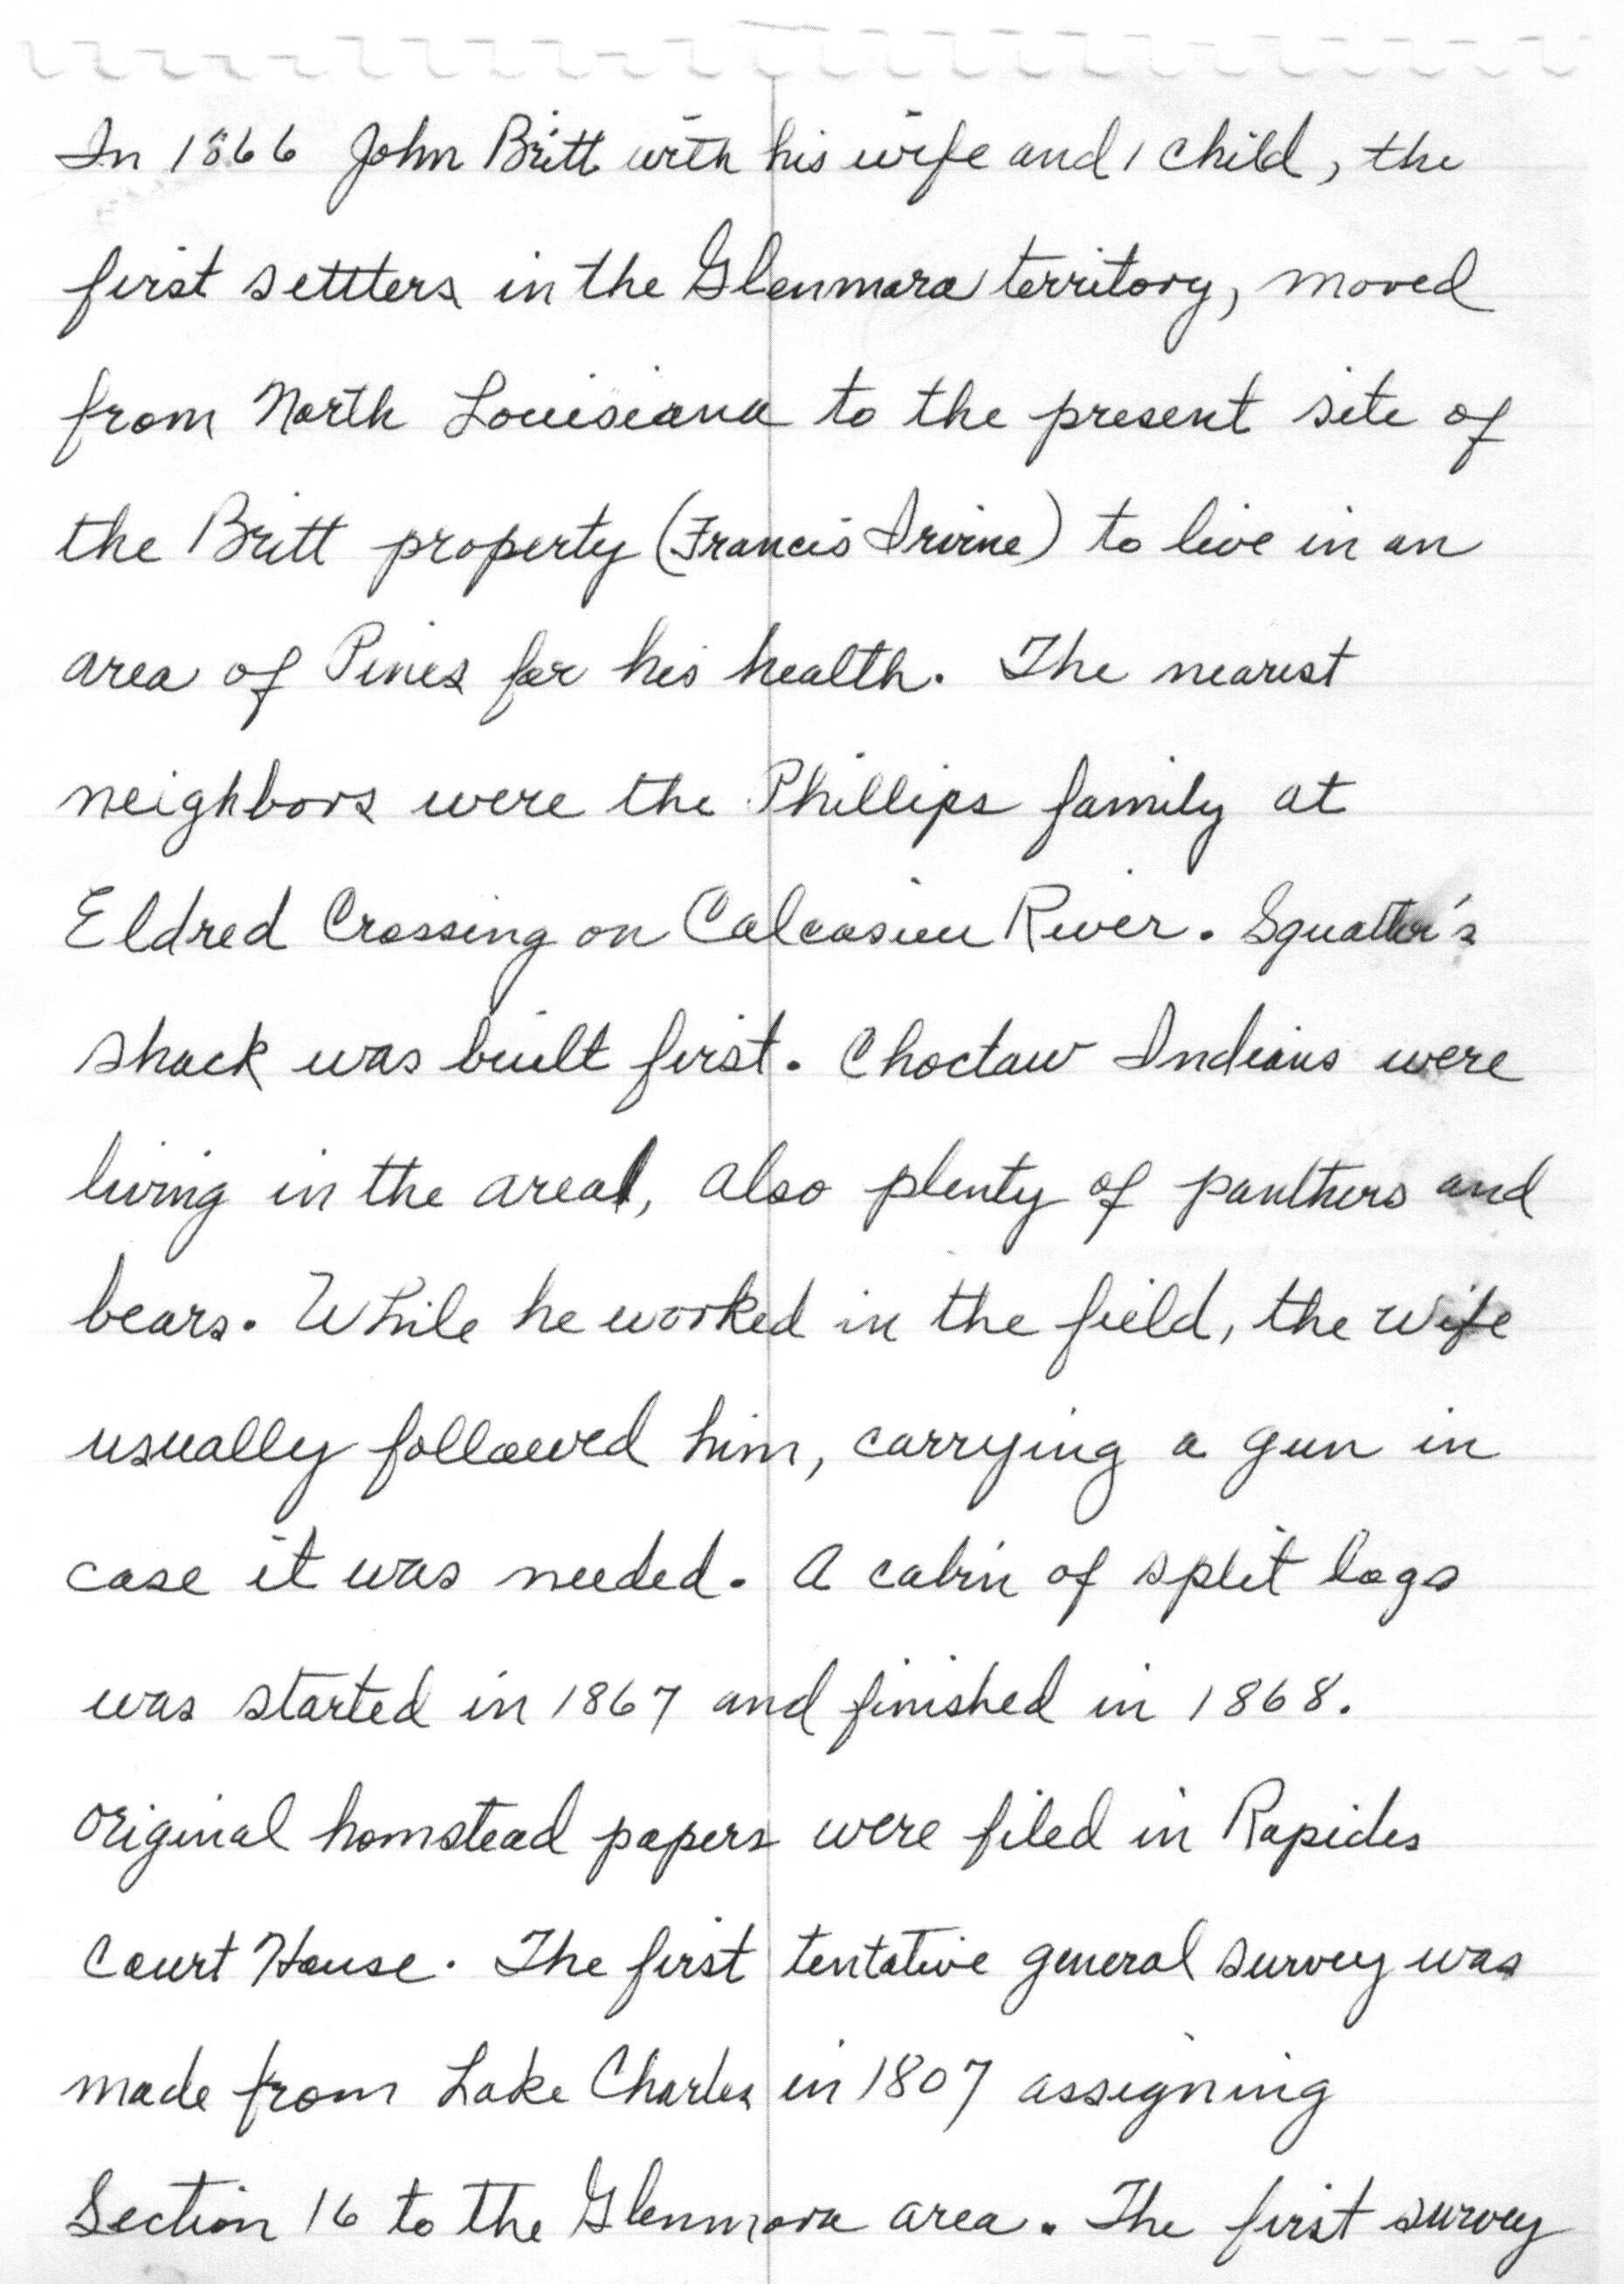 In 1866 John Britt with his wife and 1 child, the
first settters in the Glenmora territory, moved
from North Louisiana to the present site of
the Britt property (Francis Irvine) to live in an
area of Pines for his health. The nearest
neighbors were the Phillips family at
Eldred Crossing on Calcasieu River. Squatter's
shack was built first. Choctaw Indians were
living in the area, also plenty of panthers and
bears. While he worked in the field, the wife
usually followed him, carrying a gun in
case it was needed. A cabin of split logs
was started in 1867 and finished in 1868.
Original homstead papers were filed in Rapides
Court House. The first tentative general survey was
made from Lake Charles in 1807 assigning
Section 16 to the Glenmora area. The first survey